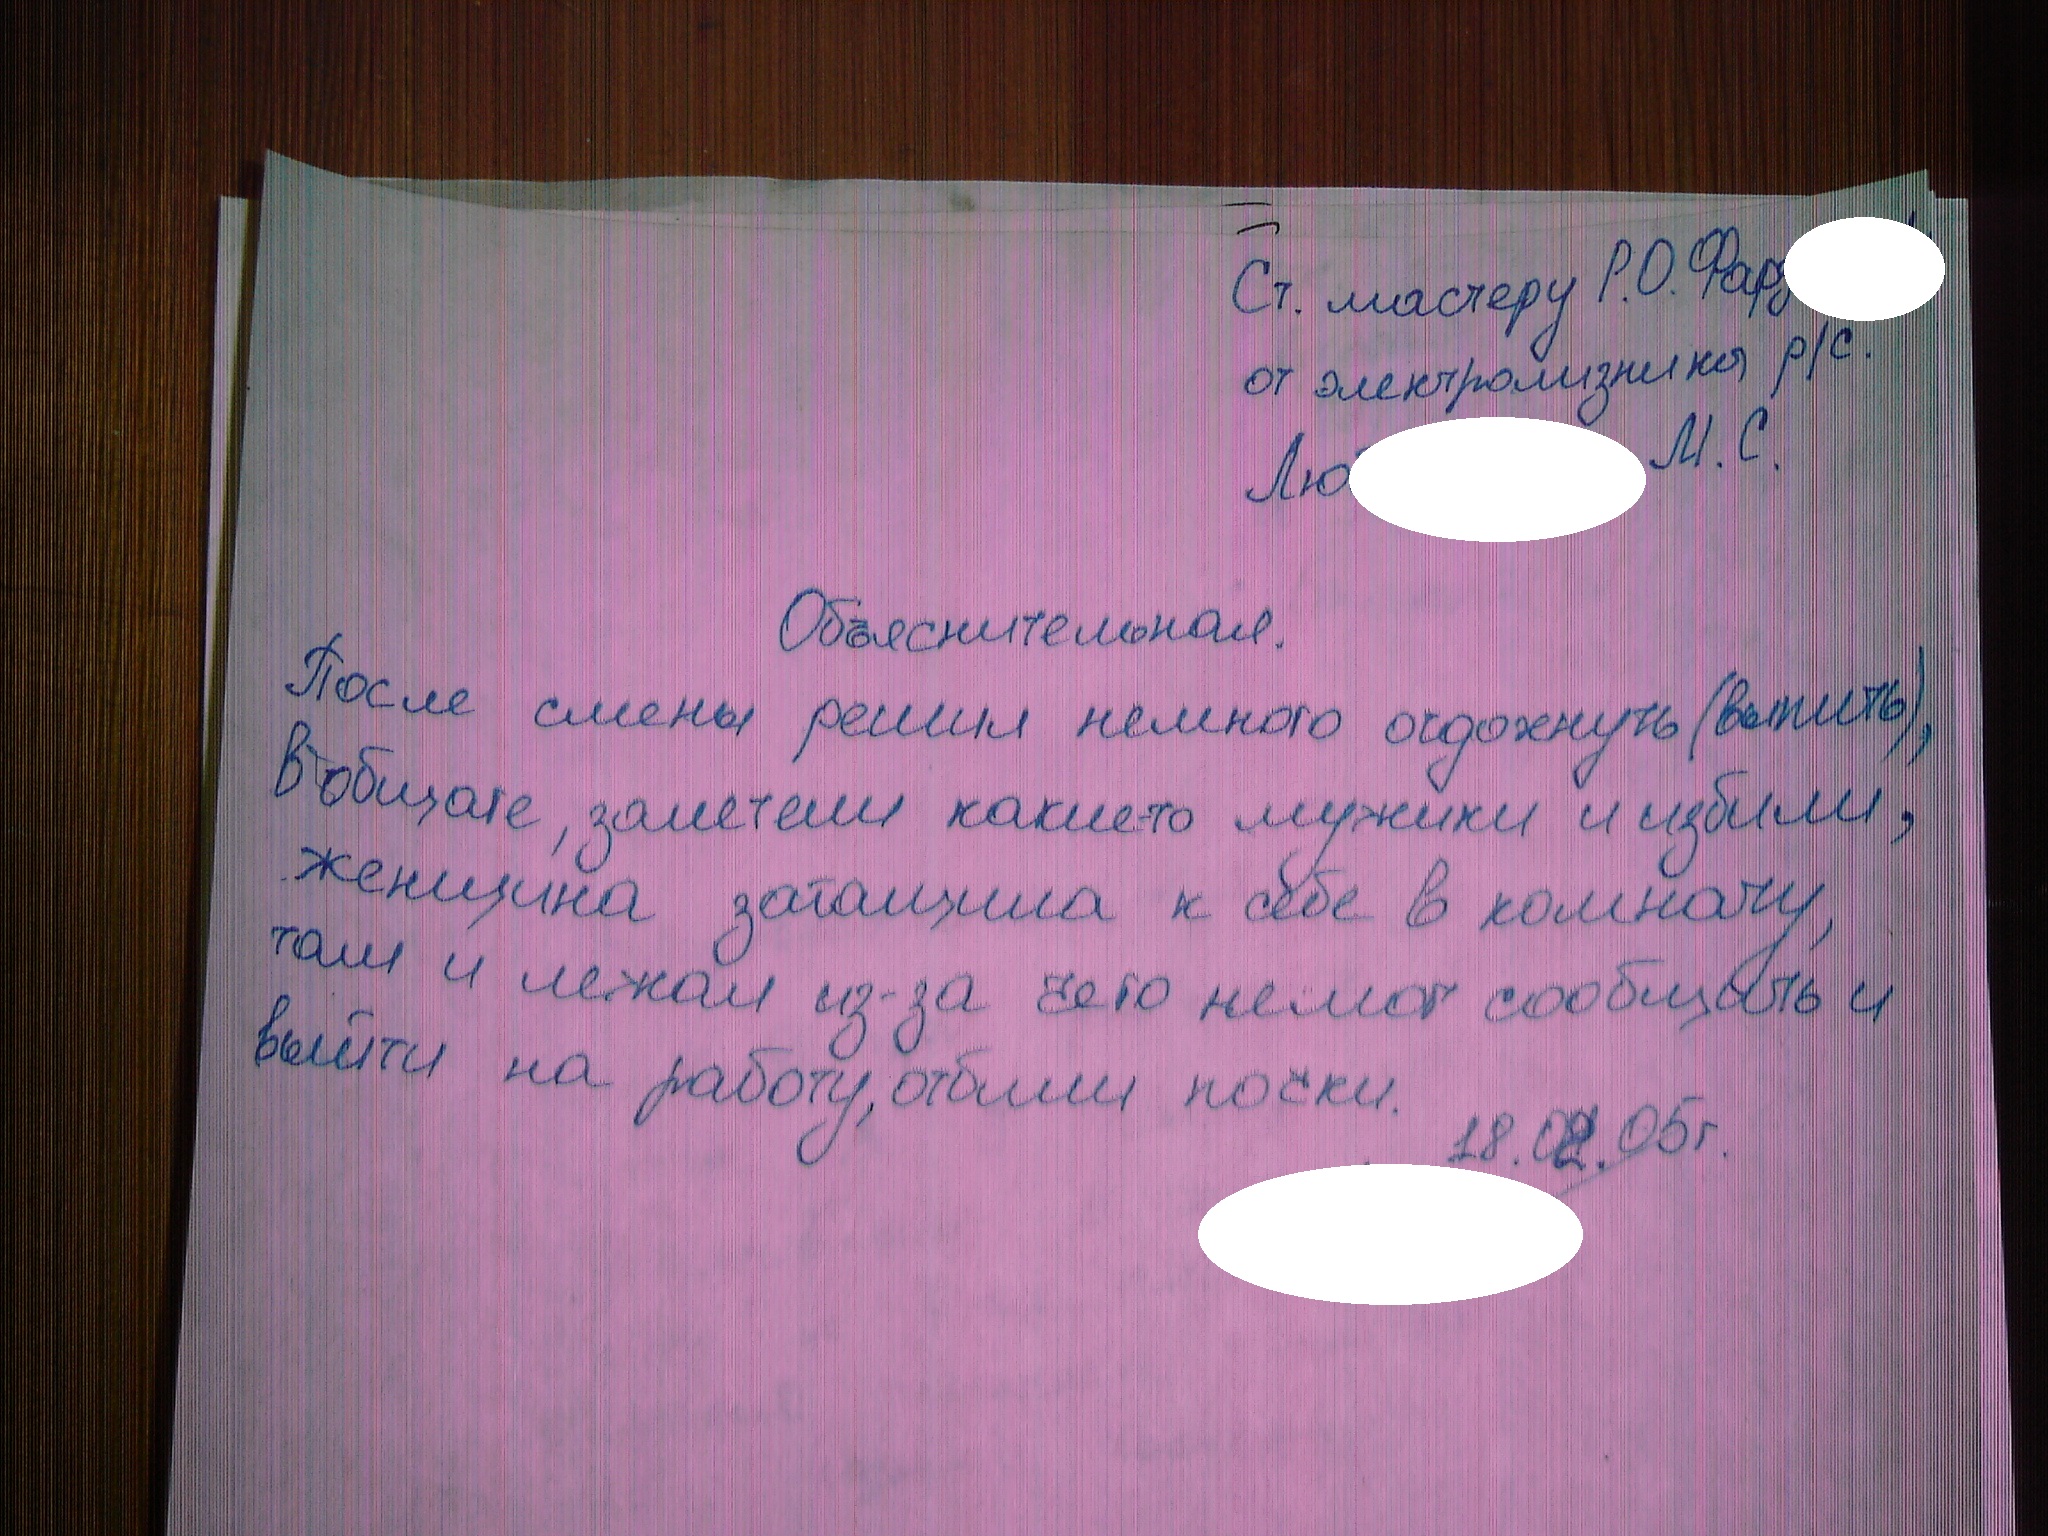 Ст. мастеру Р.О. Фарз
от электромизника р/с.
Люб М.С.
Объяснительная.
После смены решил немного отдохнуть (выпить),
в общаге, залетели какие-то мужики и избили,
женщина затащила к себе в комнату,
там и лежал из-за чего немог сообщить и
выйти на работу, отбили почки.
18.02.05г.